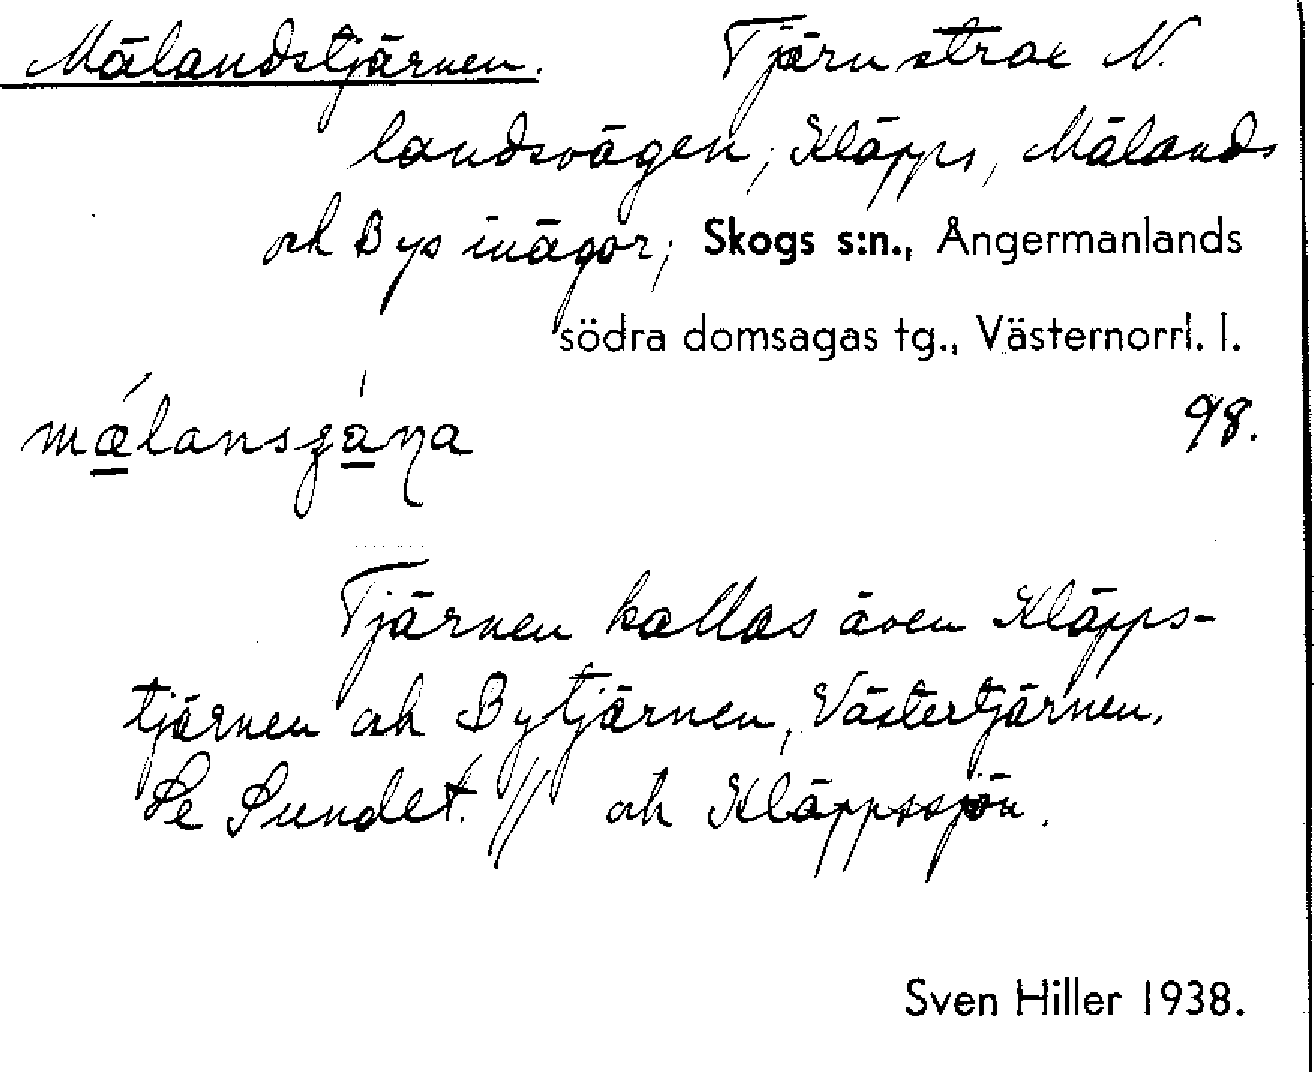 Mälandstjärnen. Tjärn strax N.
landsvägen; Kläpps, Mälands
och Bys inägor; Skogs s:n., Ångermanlands
södra domsagas tg., Västernorrl. l.
98.
Tjärnen kallas även Kläpps-
tjärnen och Bytjärnen, Västertjärnen.
Se Sundet. // och Kläppssjön.
Sven Hiller 1938.